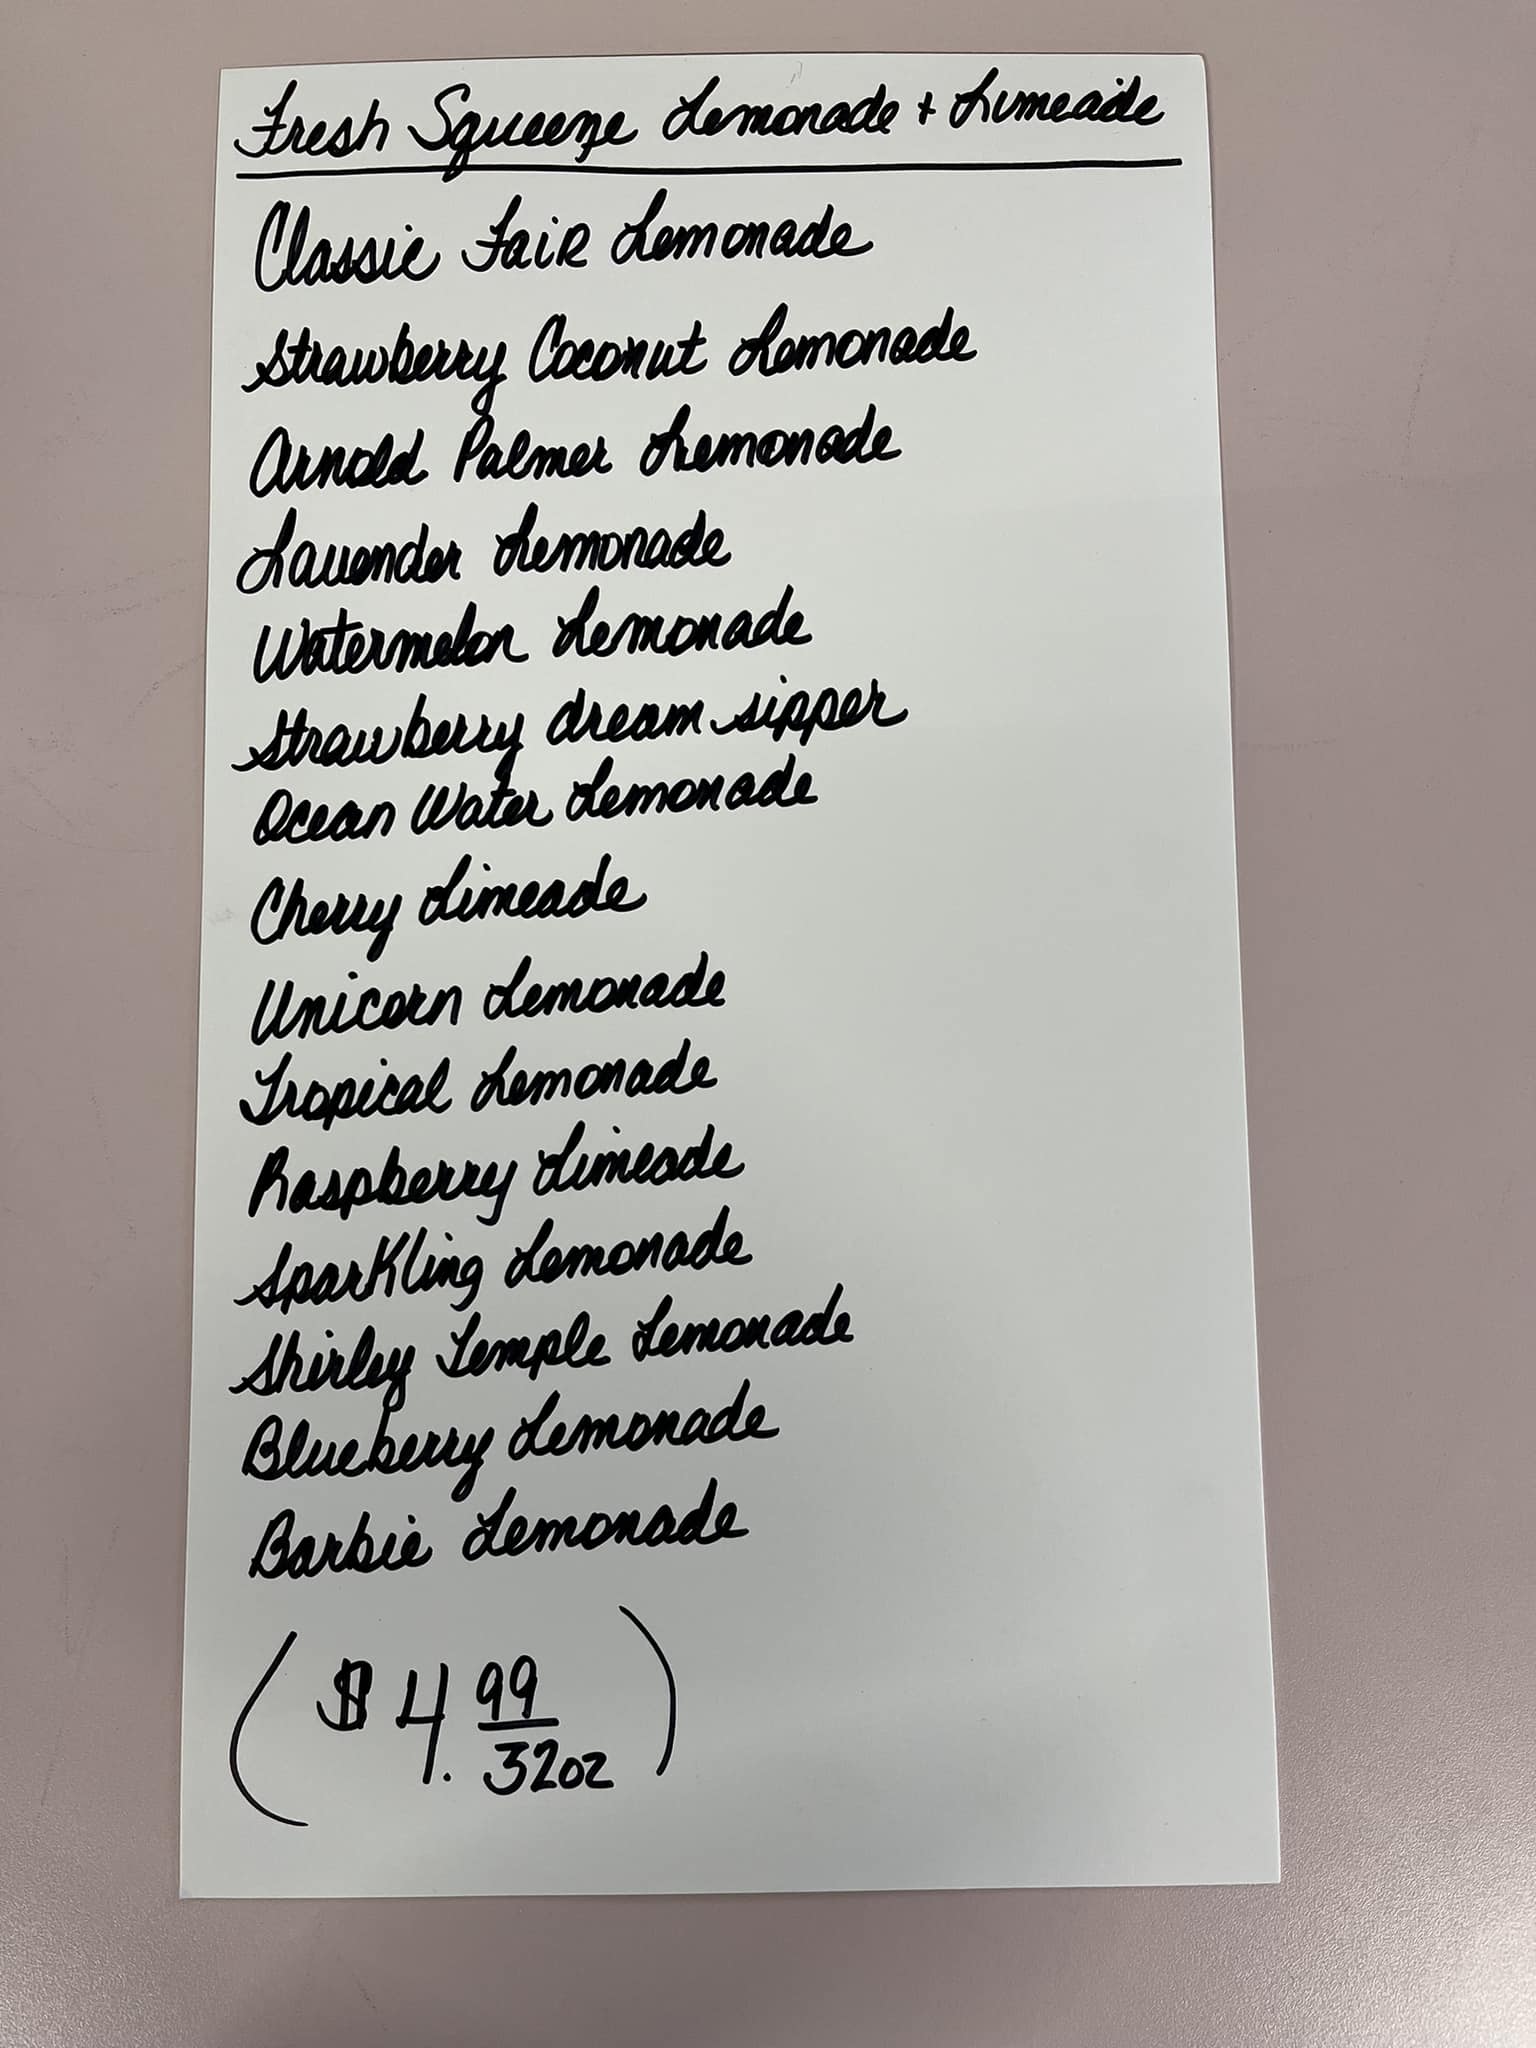 Fresh Squeeze Lemonade + Limeade
Classic Fair Lemonade
Strawberry Coconut Lemonade
Arnold Palmer Lemonade
Lavender Lemonade
Watermelon Lemonade
Strawberry dream sipper
Ocean Water Lemonade
Cherry Limeade
Unicorn Lemonade
Tropical Lemonade
Raspberry Limeade
Sparkling Lemonade
Shirley Temple Lemonade
Blueberry Lemonade
Barbie Lemonade
($4.99
32oz)